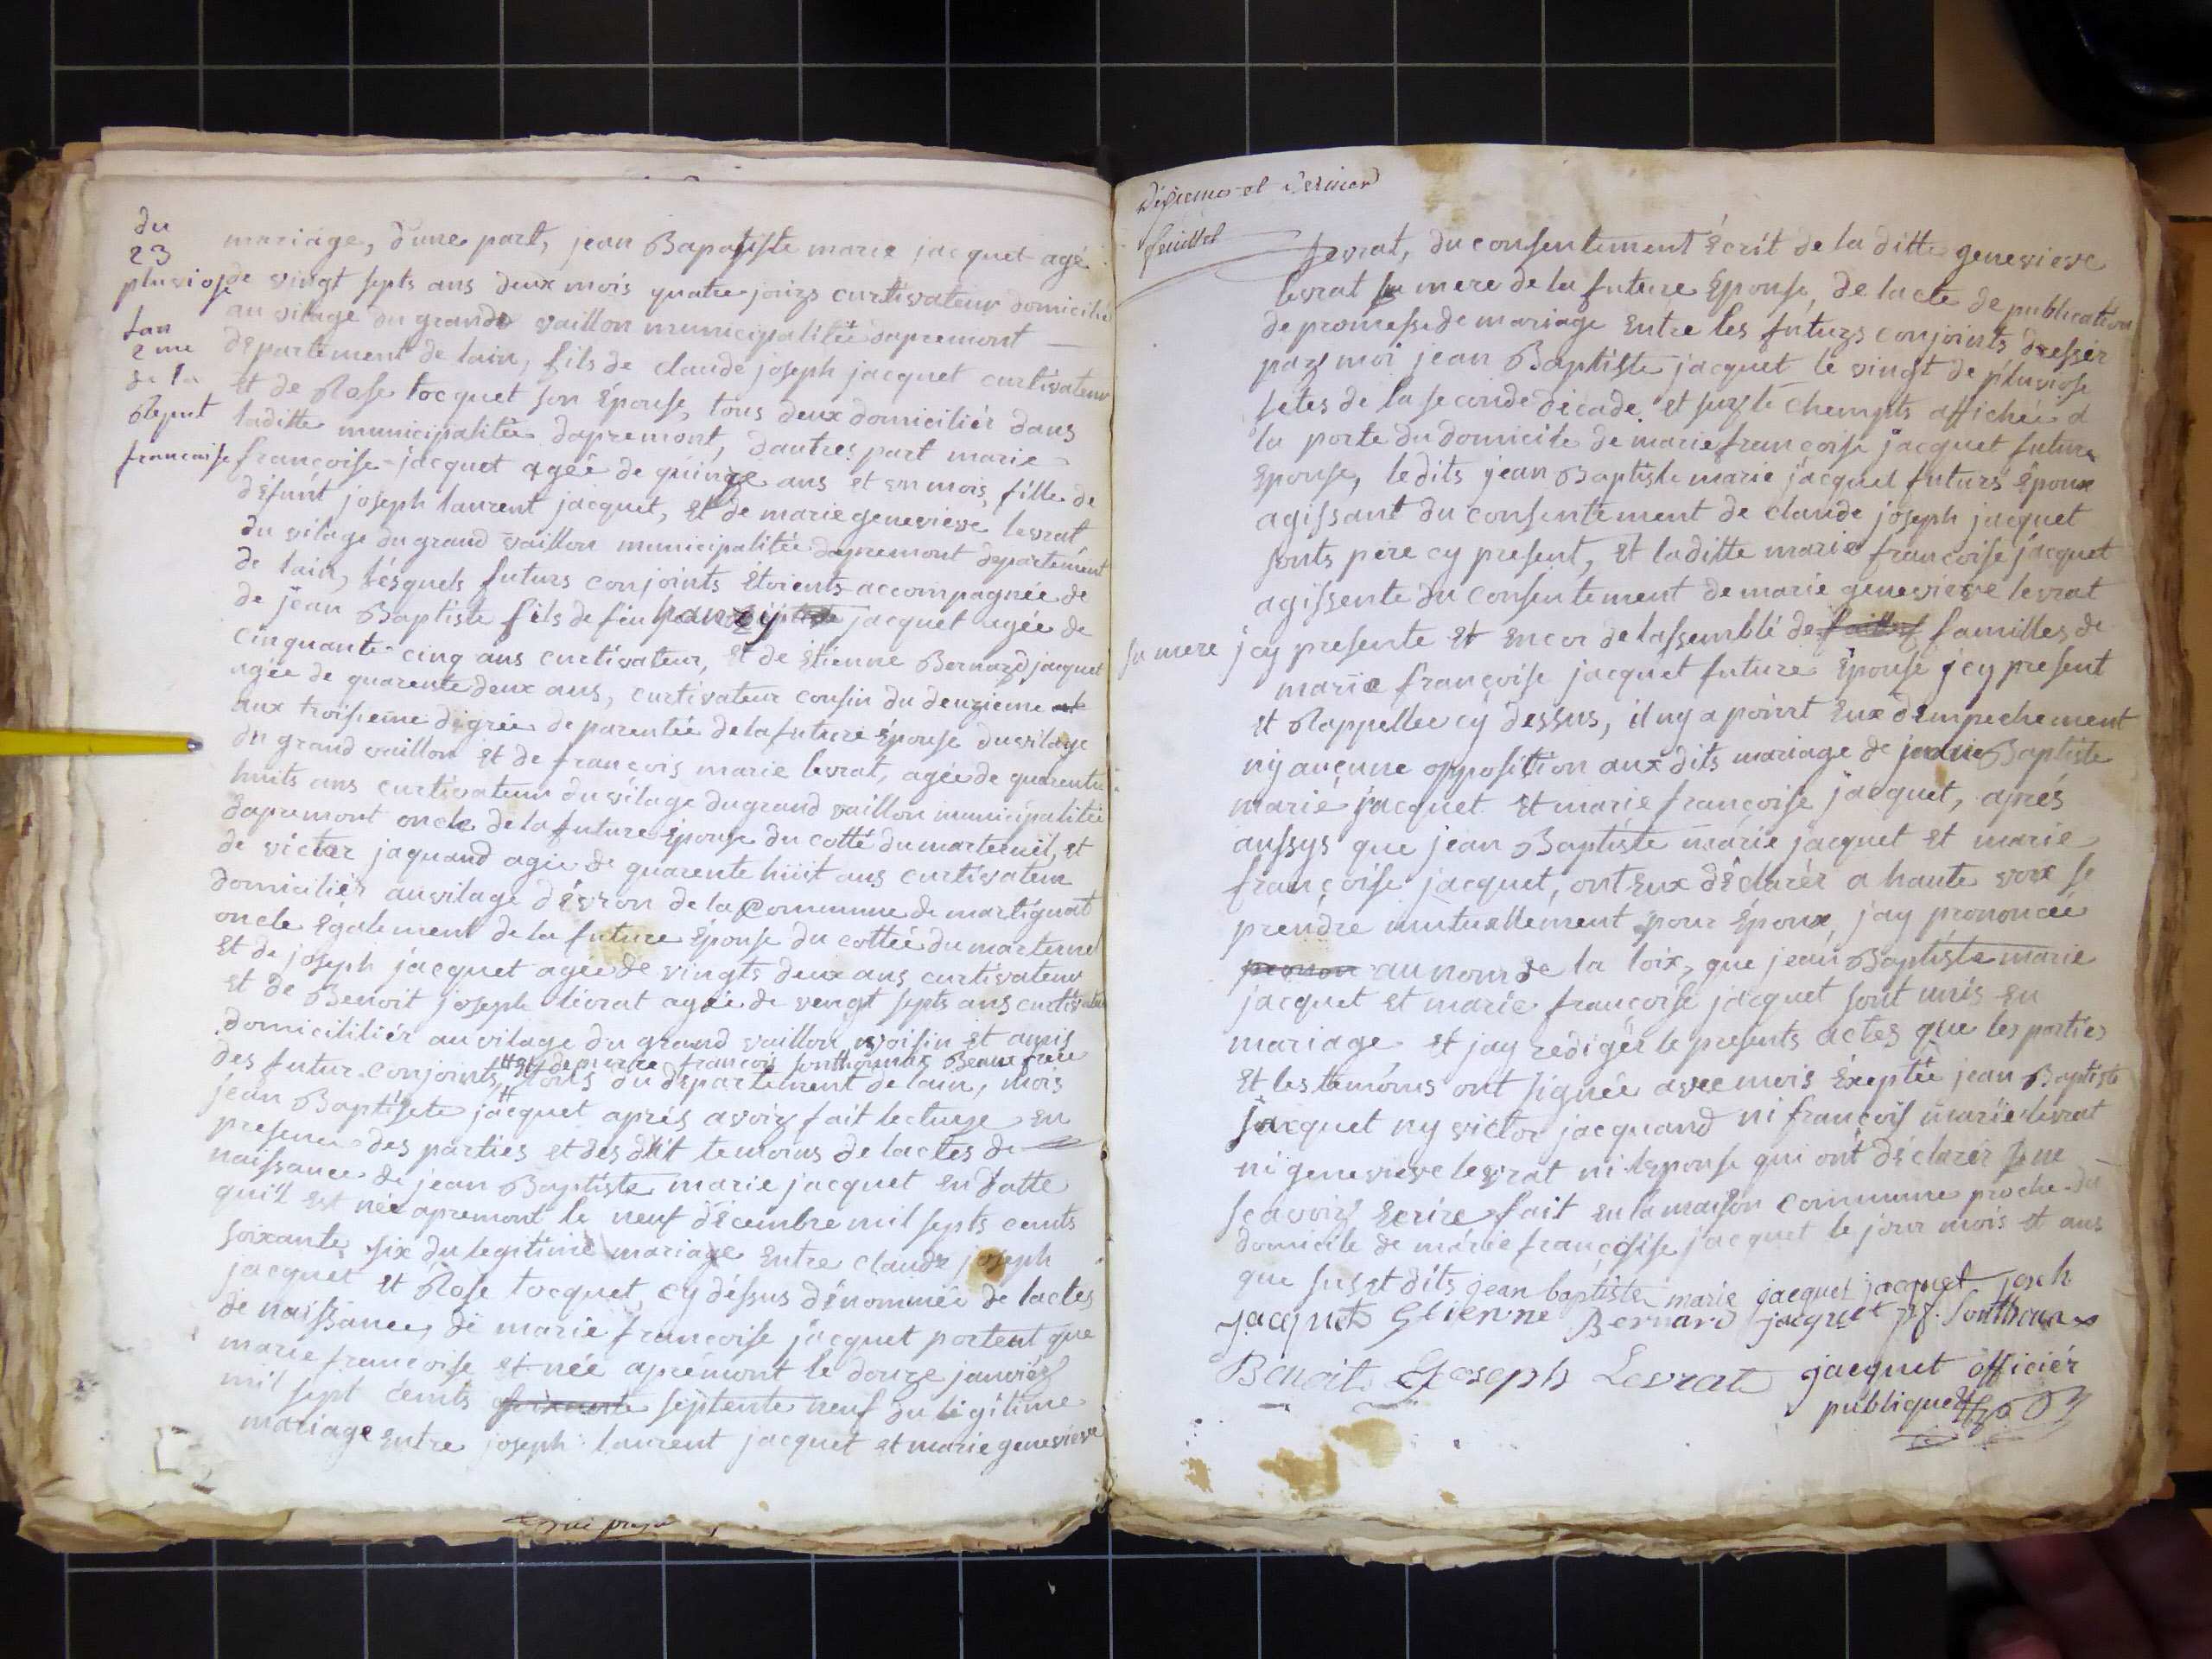 du
23
pluviose
lan
2 me
de la
Reput
francaise
mariage, dune part, jean Bapatiste marie jacquet agé
de vingt septs ans deux mois quatre joirs curtivateur domicilié
au vilage du grande vaillon municipalitée dapremont
departement de lain, fils de claude joseph jacquet curtivateur
et de Rose tocquet son Épouse, tous deux domiciliér dans
laditte municipalitée dapremont, dautres part marie
françoise jacquet agéé de quinze ans et un mois, fille de
défunt joseph laurent jacquet, et de marie genevieve levrat
du vilage du grand vaillon municipalitée dapremont departement
de lain, lésquels futurs conjoints étoients accompagnée de
de jean Baptiste fils de feu jacquet agée de
cinquante cinq ans curtivateur, et de Etienne Bernard jacquet
agée de quarente deux ans, curtivateur cousin du deuzieme
aux troisieme digrée de parentée de la future épouse du vilage
du grand vaillon et de francois marie levrat, agée de quarente
huits ans curtivateur du vilage du grand vaillon municipalitée
dapremont oncle de la future épouse du cotté du marternil, et
de victor jaquand agée de quarente huit ans curtivateur
domiciliér au vilage dévron de la Commune de martignat
oncle également de la future Eponse du cottée du marternel
Et de joseph jacquet agée de vingts deux ans curtivateur
et de Benoit joseph livrat agée de vengt septs ans curtivateur
domicililiér au vilage du grand vaillon voisin et amis
et de pierre francois sonthonnax Beaux frere
des futur conjoints, tous du département de lain, mois
jean Baptisete jacquet aprés avoir fait lecture en
presence des parties et des dit temoins de lactes de
naissance de jean Baptiste marie jacquet en datte
quil est née apremont le neuf décembre mil septs cents
soixante six du legitime mariage entre claude joseph
jacquet et Rose tocquet, cy déssus dénommée de lactes
de naissance, de marie françoise jacquet portent que
marie françoise et née apremont le douze janviér
mil sept cents soixante septente neuf du légitime
mariage entre joseph laurent jacquet et marie genevieve
Dixieme et dernier
feuillet
levrat, du consentement écrit de la ditte genevieve
levrat sa mere de la future Eponse, de lacte de publication
de promesse de mariage entre les futurs conjoints dressér
par moi jean Baptiste jacquet le vingt de pluviose
jetes de la seconde décade, et sur le champts affichée a
la porte du domicile de marie françoise jacquet future
Eponse, ledits jean Baptiste marie jacquet futurs époux
agissant du consentement de claude joseph jacquet
sonts père cy present, et laditte marie françoise jacquet
agissente du consentement de marie genevieve levrat
sa mere jcy presente et encor de lassemblé de familles de
marie françoise jacquet future Epouse jcy present
et Rappellee cy dessus, il ny a point eux dempechement
ny aucune opposition aux dits mariage de jean Baptiste
marie jacquet et marie françoise jacquet, aprés
aussys que jean Baptiste marie jacquet et marie
françoise jacquet, ont eux déclarér a haute voix se
prendre mutuellement pour époux, jay prononcée
pronon au nom de la loix, que jean Baptiste marie
jacquet et marie françoise jacquet sont unis en
mariage et jay redigér le presents actes que les parties
et les temoins ont signée avec mois éxeptée jean Baptiste
jacquet ny victor jacquand ni françois marie levrat
ni genevieve levrat ni leponse qui ont déclarér ne
seavoir ecrire fait en la maison commune proche du
domicile de marie françoise jacquet le jour mois et ans
que susetdits jean baptiste marie jacquet jacquet joseh
jacquet Etienne Bernard jacquet p f. Sonthonax
Benoit Joseph Levrat jacquet officiér
publique